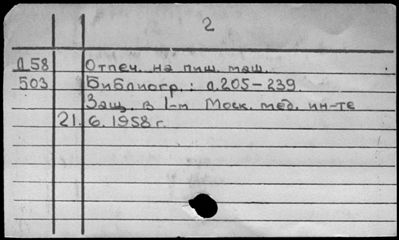 2
Д58 Отпеч. на пиш. маш.
503 Библиогр.: л.205-239.
Защ. в 1-м Моск. мед. ин-те
21.6.1958 г.